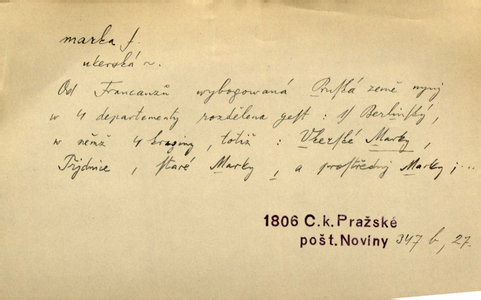 marka f.
ukerská ~.
Od Francauzů wybogowaná Pruská země nynj
w 4 departementy rozdělena gest : 1/ Berlínský,
w němž 4 kraginy, totiž : Ukerské Marky,
Prýdnice, staré Marky, a prostřednj Marky; ...
1806 C.k. Pražské
pošt. Noviny 347 b, 27.